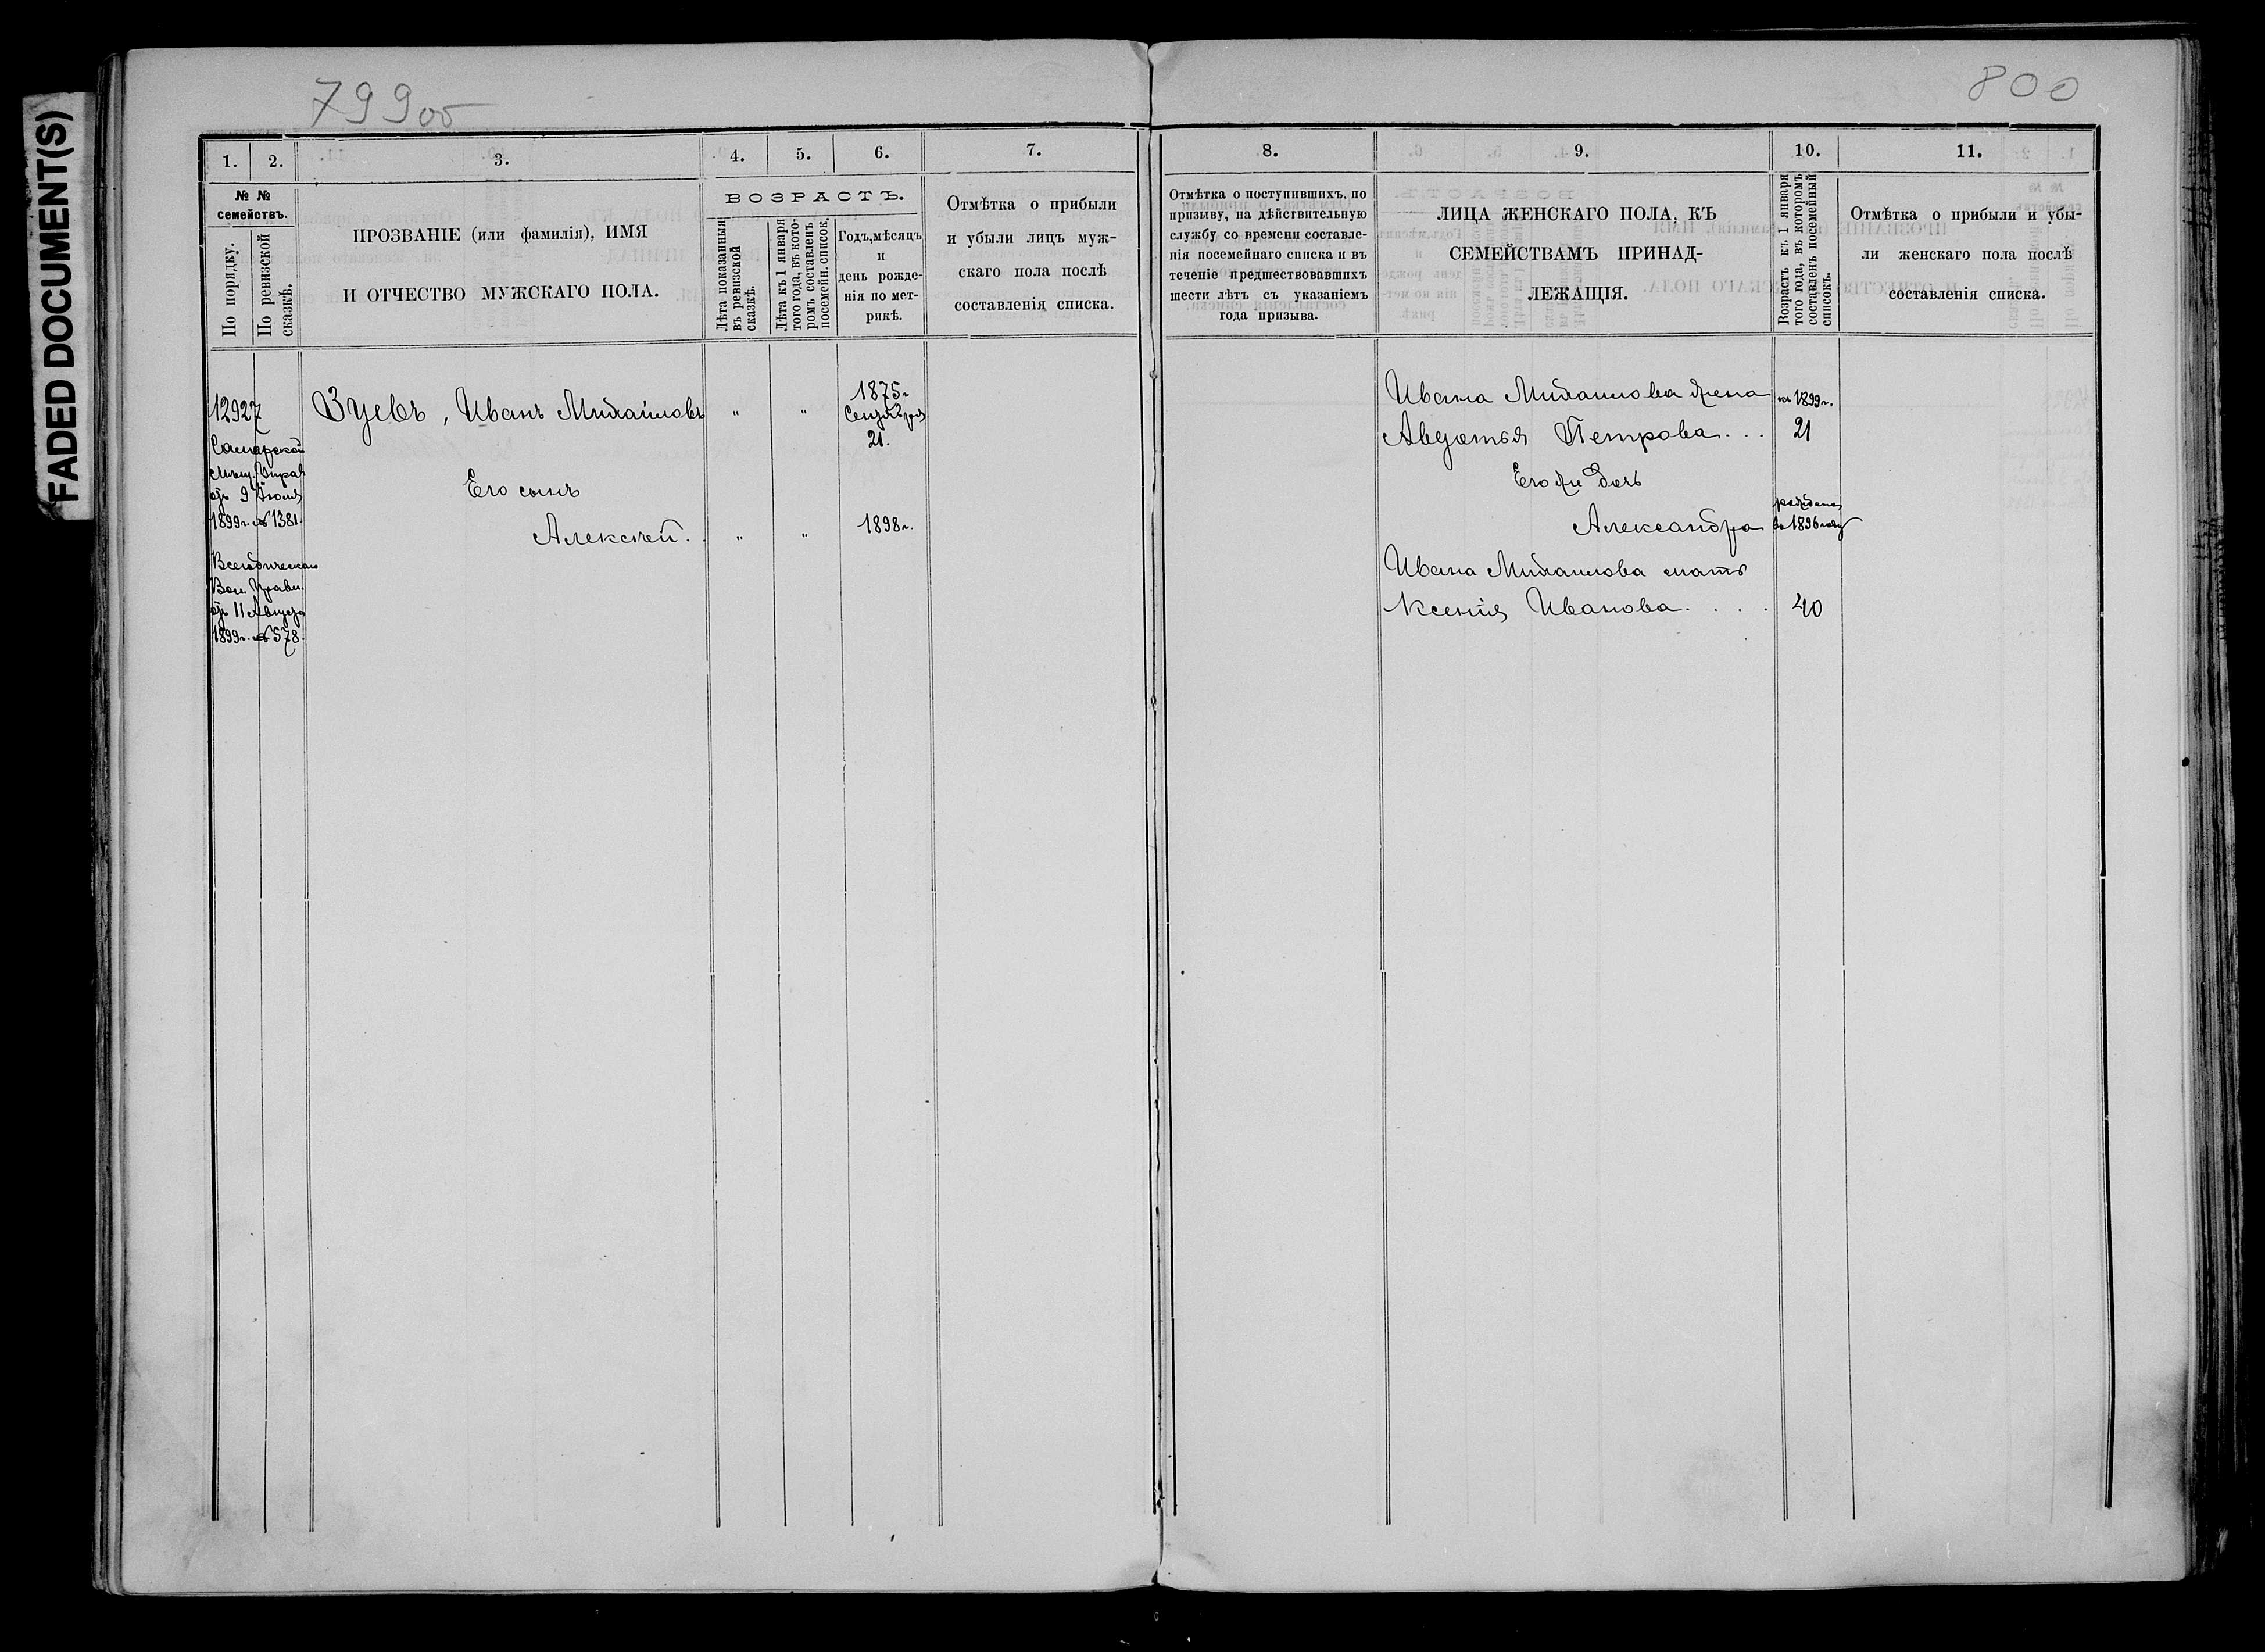 FADED DOCUMENT(S)
799об
800
1. 2. 3. 4. 5. 6. 7.
№ №
семействъ.
По порядку.
По ревизской
сказкѣ.
ПРОЗВАНІЕ (или фамилія), ИМЯ
И ОТЧЕСТВО МУЖСКАГО ПОЛА.
ВОЗРАСТЪ.
Лѣта показанныя
въ ревизской
сказкѣ.
Лѣта къ 1 января
того года, въ кото-
ромъ составленъ
посемейн. список.
Годъ, мѣсяцъ
и
день рожде-
нія по мет-
рикѣ.
Отмѣтка о прибыли
и убыли лицъ муж-
скаго пола послѣ
составленія списка.
12927
Самарской
Мѣщ. Управ
отъ 9 Іюля
1899г. № 1381.
Вол. Правл.
отъ 11 Августа
1899г. № 578.
Зуевъ, Иванъ Михайловъ " " 1875г.
Сентября
21.
Его сынъ
Алексѣй. " " 1898г.
8. 9. 10. 11.
Отмѣтка о поступившихъ, по
призыву, на дѣйствительную
службу со времени составле-
нія посемейнаго списка и въ
теченіе предшествовавшихъ
шести лѣтъ съ указаніемъ
года призыва.
ЛИЦА ЖЕНСКАГО ПОЛА, КЪ
СЕМЕЙСТВАМЪ ПРИНАД-
ЛЕЖАЩІЯ.
Возрастъ къ 1 января
того года, въ которомъ
составленъ посемейный
списокъ.
Отмѣтка о прибыли и убы-
ли женскаго пола послѣ
составленія списка.
Ивана Михаилова жена къ 1899г.
Авдотья Петрова . . . 21
Его же дочь
Александра
въ 1896 году
Ивана Михаилова мать
Ксенія Иванова . . . . 40